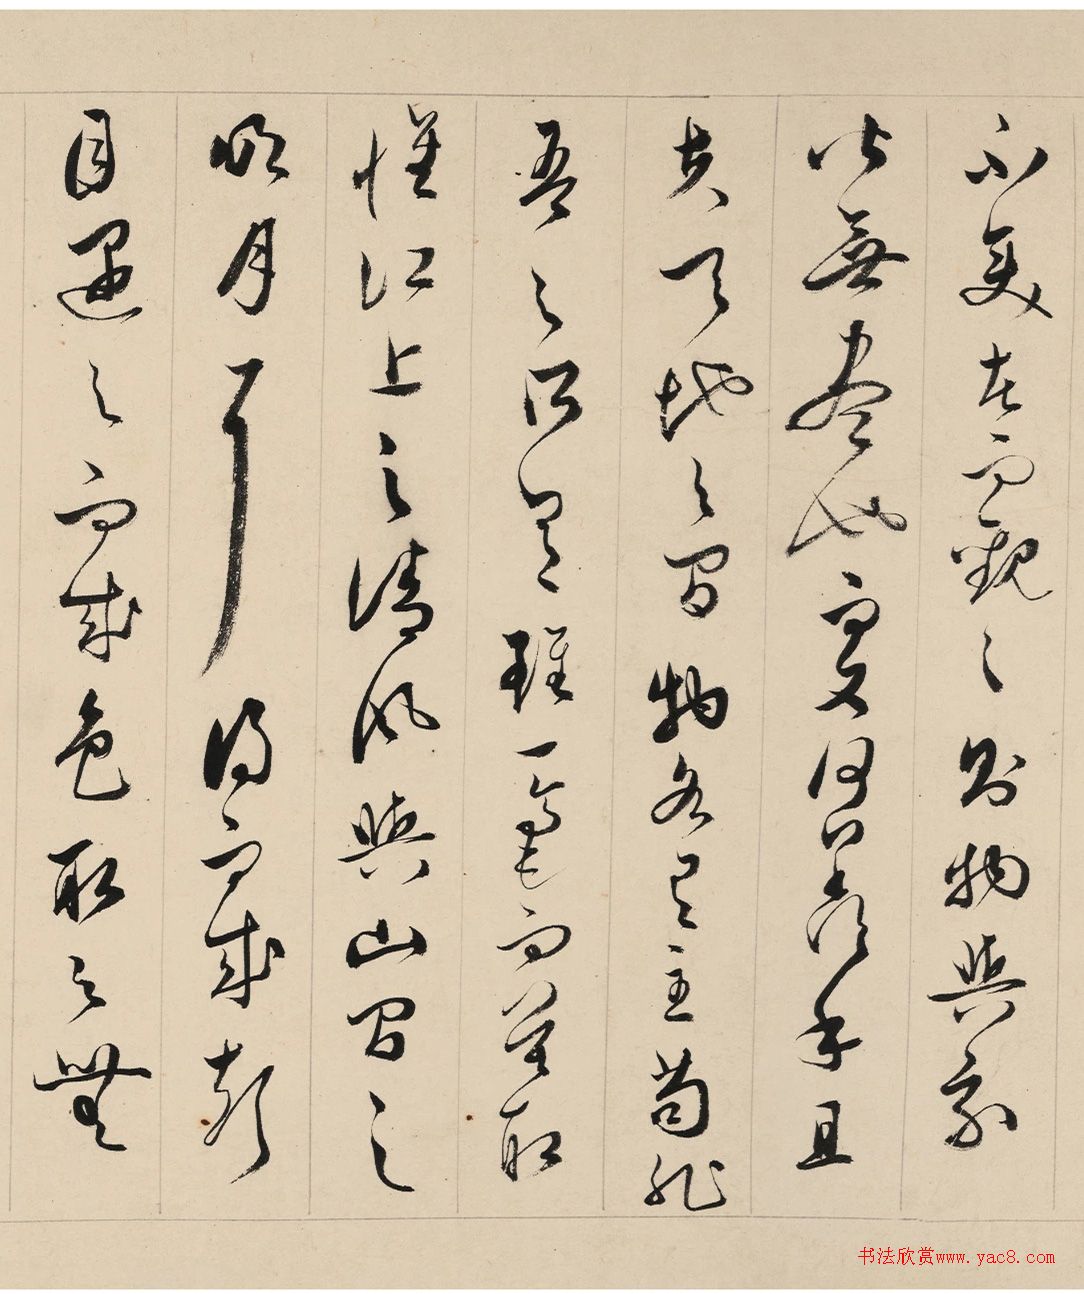 不變者而觀之則物與我
皆無盡也而又何羨乎且
夫天地之間物各有主苟非
吾之所有雖一毫而莫取
惟江上之清風與山間之
明月耳得而成聲
目遇之而成色取之無
书法欣赏www.yac8.com